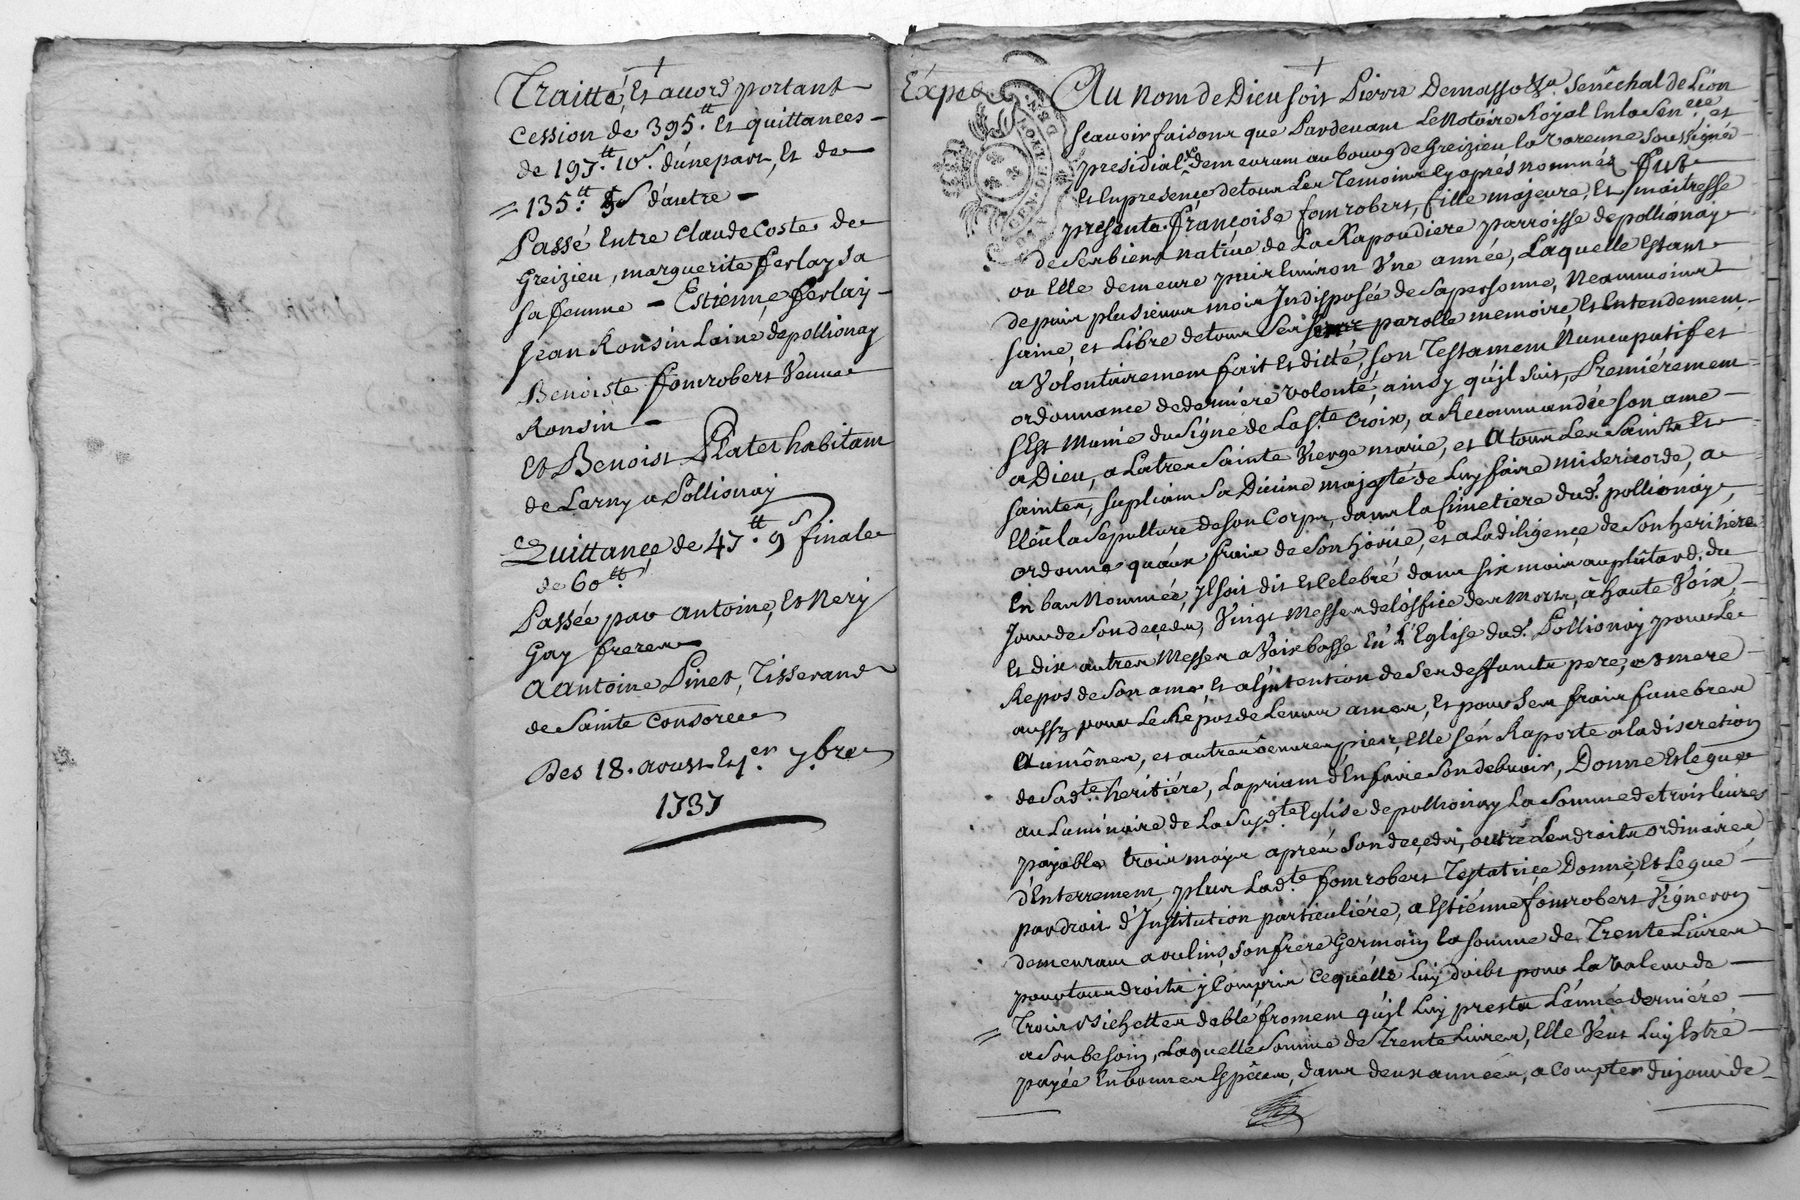 Traitté, Et accord portant
Cession de 395.tt Et quittances
de 197.tt 10.s d'une part, Et de
135.tt 5s d'autre
Passé Entre Claude Coste de
Greizieu, marguerite ferlay sa
sa femme - Estienne ferlay
Jean Ronsin Laine de pollionay
Benoiste fomrobert Veuve
Ronsin
Et Benoist Plater habitam
de Larny a Pollionay
Quittance de 47.tt 9s finale
de 60.tt
Passée par antoine, Et Nery
Gay freres
a antoine Pinet, Tisserand
de Sainte Consorce
Des 18. aoust Et 1.er 7.bre
1737
Expéd
Au nom de Dieu soit Pierre Demasso Sénéchal de Lion
Scavoir faisons que Pardevant Le Notaire Royal En la Sen.ée, et
presidial demeurant au bourg de Greizieu la varenne soussigné
Et En presence de tous Les Temoins Cy aprés nommés fut
presente françoise fomrobert, fille majeure, Et maitresse
de Ses biens native de La Rapoudiere parroisse de pollionay
ou Elle demeure puis Environ Vne année, Laquelle Estant
depuis plusieurs mois Indisposée de Sa personne, Neammoins
saine, et Libre de tous Ses parolle memoire, Et Entendement
a Volontairement fait Et dicté, son Testament Nuncupatif et
ordonnance de derniére volonté, ainsy qu'il suit, Premiérement
s'Est Munie du Signe de La S.te Croix, a Recommandée son ame
a Dieu, a La tres Sainte Vierge marie, et A tous Les Saints Et
saintes, supliant Sa Divine majesté de Luy faire misericorde, a
Eleu La Sepulture de son Corps, dans la Simetiere dud. pollionay,
ordonne qu'aux frais de son hoirie, et a La diligence de son heritiére
En bas Nommée, y soit dit Et Celebré dans six mois au plûtard du
Jour de Son deçeds, Vingt Messes de l'office des Morts, à haute Voix,
Et dix autres Messes a Voix basse En L'Eglise dud. Pollionay pour Le
Repos de Son ame, Et a l'jntention de Ses deffunts pere, et mere
aussy pour Le Repos de Leurs ames, Et pour Ses frais funebres
Aumônes, et autres oeuvres pies, Elle s'en Raporte a la discretion
de Sad.te heritiére, La priant d'En faire Son debvoir, Donne Et legue
au Luminaire de La Susd.te Eglise de pollionay La Somme de trois livres
payable trois mois aprés Son deçeds, outre Les droits ordinaires
d'Enterrement, plus Lad.te fomrobert Testatrice Donne, Et Legue
par droit d'Institution particuliére, a Estienne fomrobert Vigneron
demeurant a oulins, son frere Germain la somme de Trente Livres
pour tous droits y Compris ce qu'elle Luy doibt pour La valeur de
Trois bichettes de blé froment qu'il Luy presta L'année derniére
a Son besoin, Laquelle Somme de Trente Livres, Elle Veut Luy Estre
payée En bonnes Especes, dans deux années, a compter du jour de